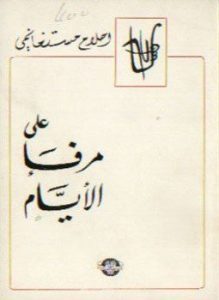 احلام مستغانمي
على
مرفأ
الأيّام